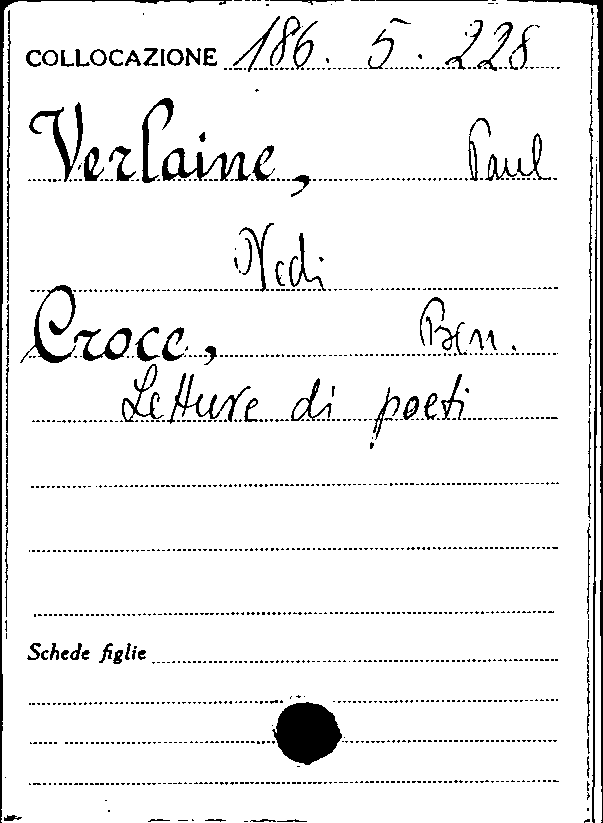 COLLOCAZIONE 186. 5. 228
Verlaine, Paul
Vedi
Croce, Ben.
Letture di poeti
Schede figlie